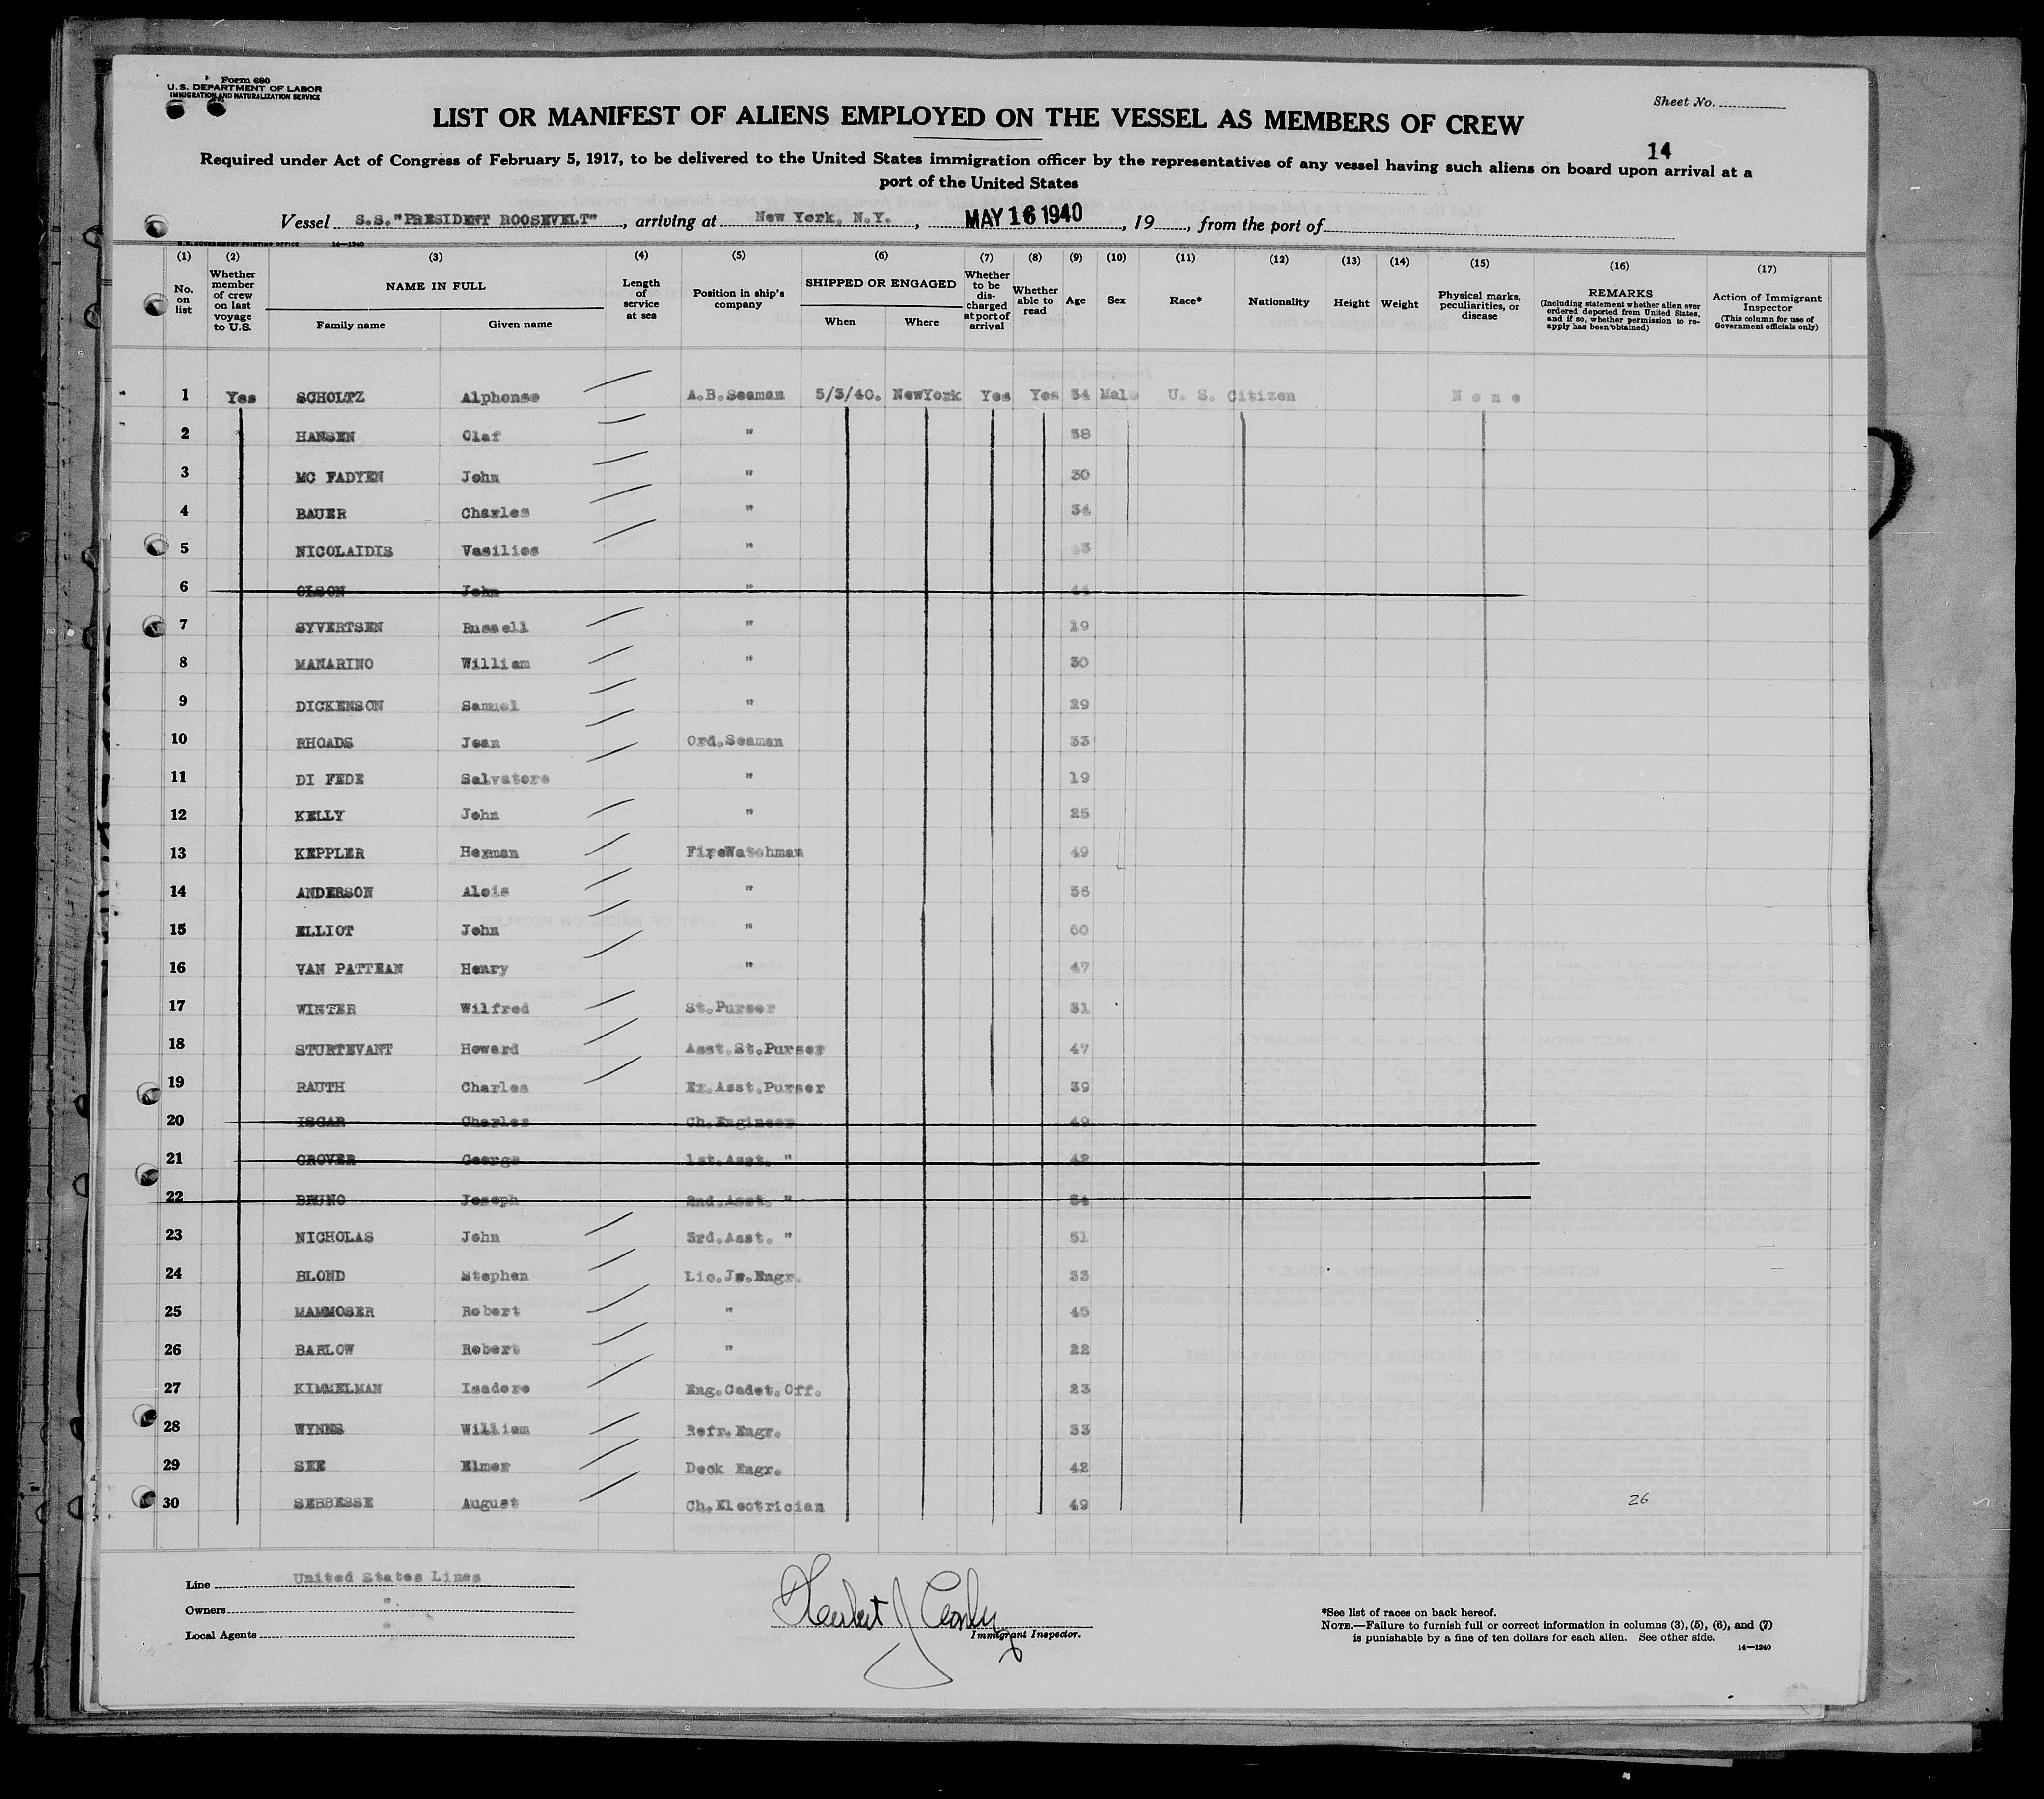 Form 680
U.S. DEPARTMENT OF LABOR
IMMIGRATION AND NATURALIZATION SERVICE
Sheet No.
LIST OR MANIFEST OF ALIENS EMPLOYED ON THE VESSEL AS MEMBERS OF CREW
14
Required under Act of Congress of February 5, 1917, to be delivered to the United States immigration officer by the representatives of any vessel having such aliens on board upon arrival at a
port of the United States
Vessel S.S."PRESIDENT ROOSEVELT", arriving at New York, N.Y., MAY 16 1940, 19, from the port of
U.S. GOVERNMENT PRINTING OFFICE 14—1240
(1) (2) (3) (4) (5) (6) (7) (8) (9) (10) (11) (12) (13) (14) (15) (16) (17)
No. on list
Whether member of crew on last voyage to U.S.
NAME IN FULL
Family name Given name
Length of service at sea
Position in ship's company
SHIPPED OR ENGAGED
When Where
Whether to be discharged at port of arrival
Whether able to read
Age Sex Race* Nationality Height Weight
Physical marks, peculiarities, or disease
REMARKS
(Including statement whether alien ever ordered deported from United States, and if so, whether permission to reapply has been obtained)
Action of Immigrant Inspector
(This column for use of Government officials only)
1 Yes SCHOLTZ Alphonse A.B.Seaman 5/3/40. NewYork Yes Yes 34 Male U. S. Citizen None
2 HANSEN Olaf " 38
3 MC FADYEN John " 30
4 BAUER Charles " 34
5 NICOLAIDIS Vasilios " 43
6 OLSON John " 44
7 SYVERTSEN Russell " 19
8 MANARINO William " 30
9 DICKENSON Samuel " 29
10 RHOADS Jean Ord.Seaman 33
11 DI FEDE Salvatore " 19
12 KELLY John " 25
13 KEPPLER Herman FireWatchman 49
14 ANDERSON Alois " 56
15 ELLIOT John " 60
16 VAN PATTEAN Henry " 47
17 WINTER Wilfred St.Purser 31
18 STURTEVANT Howard Asst.St.Purser 47
19 RAUTH Charles Ex.Asst.Purser 39
20 ISGAR Charles Ch.Engineer 49
21 GROVER George 1st.Asst. " 42
22 BRUNO Joseph 2nd.Asst. " 54
23 NICHOLAS John 3rd.Asst. " 51
24 BLOND Stephen Lic.Jr.Engr. 33
25 MAMMOSER Robert " 45
26 BARLOW Robert " 22
27 KIMMELMAN Isadore Eng.Cadet.Off. 23
28 WYNNS William Refr.Engr. 33
29 SEE Elmer Deck Engr. 42
30 SERBESSE August Ch.Electrician 49
26
Line United States Lines
Owners "
Local Agents "
Immigrant Inspector.
*See list of races on back hereof.
NOTE.—Failure to furnish full or correct information in columns (3), (5), (6), and (7)
is punishable by a fine of ten dollars for each alien. See other side.
14—1240